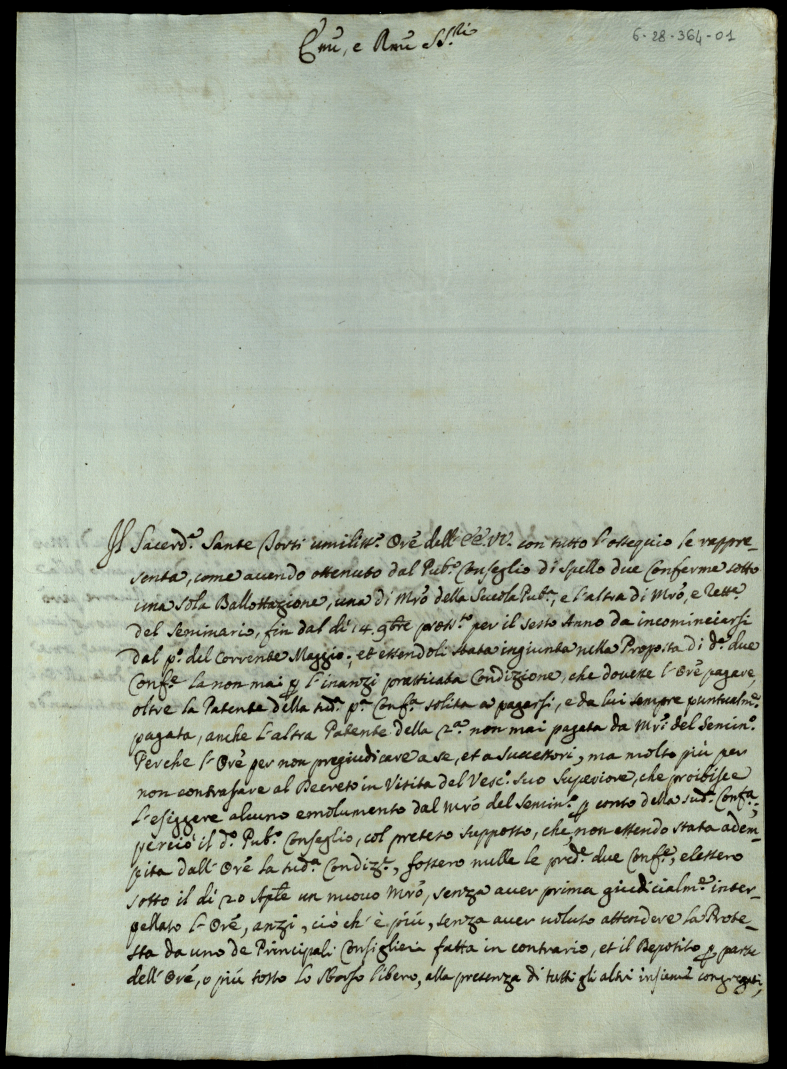 6-28-364-01
Emi, e Rmi SS.ri
Il Sacerd.e Sante Borti umiliss.o Ore dell' EE. VV. con tutto l'ossequio le rappre-
senta, come avendo ottenuto dal Pub.o Conseglio di Spello due Conferme sotto
una sola Ballottazione, una di Mro della Scuola Pub.a, e l'altra di Mro, e Rett.e
del Seminario, fin dal di 14. 9bre pross.to per il sesto Anno da incominciarsi
dal p.o del Corrente Maggio; et essendoli stata ingiunta nella Proposta di d.e due
Conf.e la non mai p l'inanzi pratticata Condizione, che dovesse l'Ore pagare,
oltre la Patente della sud.a p.a Conf.a solita a pagarsi, e da lui sempre puntualm.e
pagata, anche l'altra Patente della 2.a non mai pagata da Mri del Semin.o
Perche l'Ore per non pregiudicare a se, et a successori, ma molto più per
non contrafare al Decreto in Visita del Vesc.o suo Superiore, che proibisce
l'esiggere alcuno emolumento dal Mro del Semin.o p conto della sud.a Conf.a;
perciò il d.o Pub.o Conseglio, col preteso supposto, che, non essendo stata adem-
pita dall'Ore la sud.a Condiz.e, fossero nulle le pred.e due Conf.e, elessero
sotto il di 20 Aple un nuovo Mro, senza aver prima giudicialm.e inter-
pellato l'Ore, anzi, ciò ch'è più, senza aver voluto attendere la Prote-
sta da uno de Principali Consiglieri fatta in contrario, et il Deposito p parte
dell'Ore, o più tosto lo sborso libero, alla presenza di tutti gli altri insieme congregati,